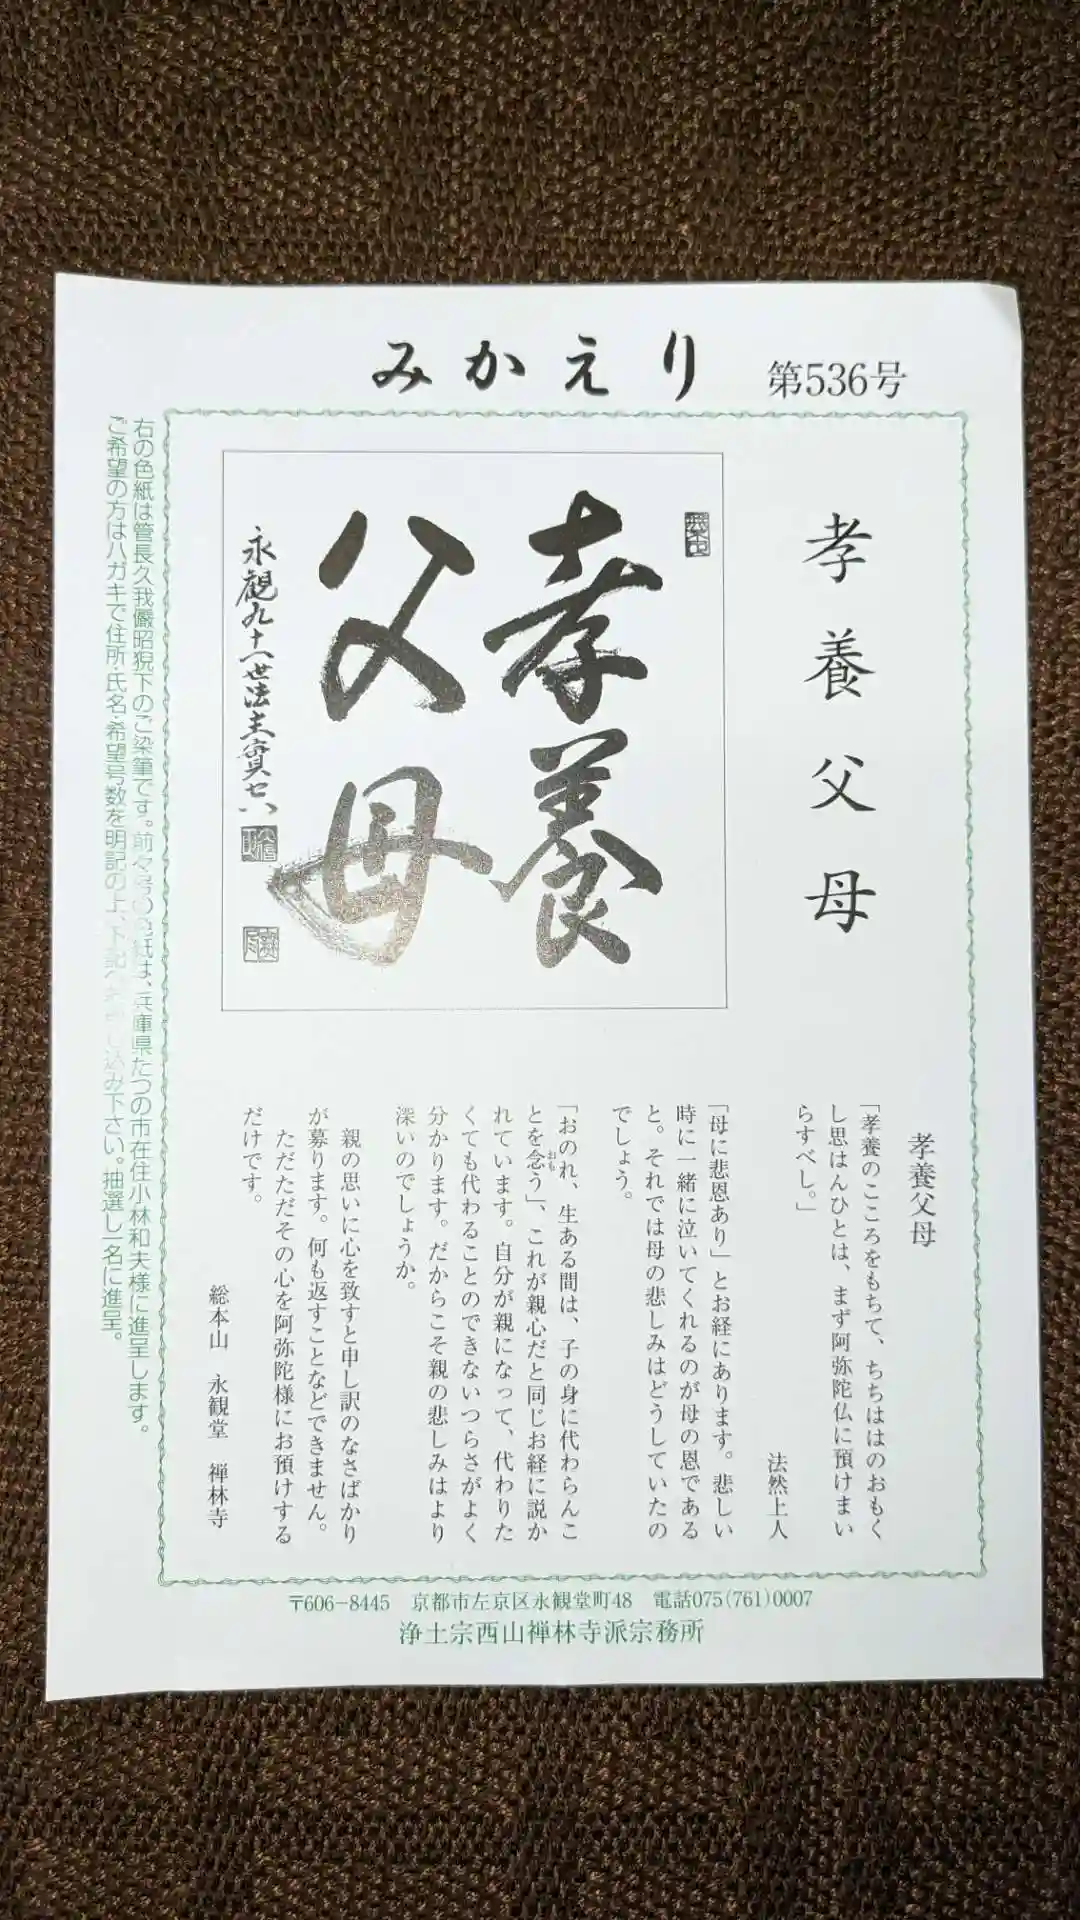 みかえり 第536号
孝養父母
孝養
父母
永觀九十一世法主
孝養父母
「孝養のこころをもちて、ちちははのおもく
し思はんひとは、まず阿弥陀仏に預けまい
らすべし。」
法然上人
「母に悲恩あり」とお経にあります。悲しい
時に一緒に泣いてくれるのが母の恩である
と。それでは母の悲しみはどうしていたの
でしょう。
「おのれ、生ある間は、子の身に代わらんこ
とを念う」、これが親心だと同じお経に説か
れています。自分が親になって、代わりた
くても代わることのできないつらさがよく
分かります。だからこそ親の悲しみはより
深いのでしょうか。
親の思いに心を致すと申し訳のなさばかり
が募ります。何も返すことなどできません。
ただただその心を阿弥陀様にお預けする
だけです。
総本山 永観堂 禅林寺
右の色紙は管長久我儼昭猊下のご染筆です。前々号の色紙は、兵庫県たつの市在住小林和夫様に進呈します。
ご希望の方はハガキで住所・氏名・希望号数を明記の上、下記へお申し込み下さい。抽選し一名に進呈。
〒606-8445 京都市左京区永観堂町48 電話075(761)0007
浄土宗西山禅林寺派宗務所